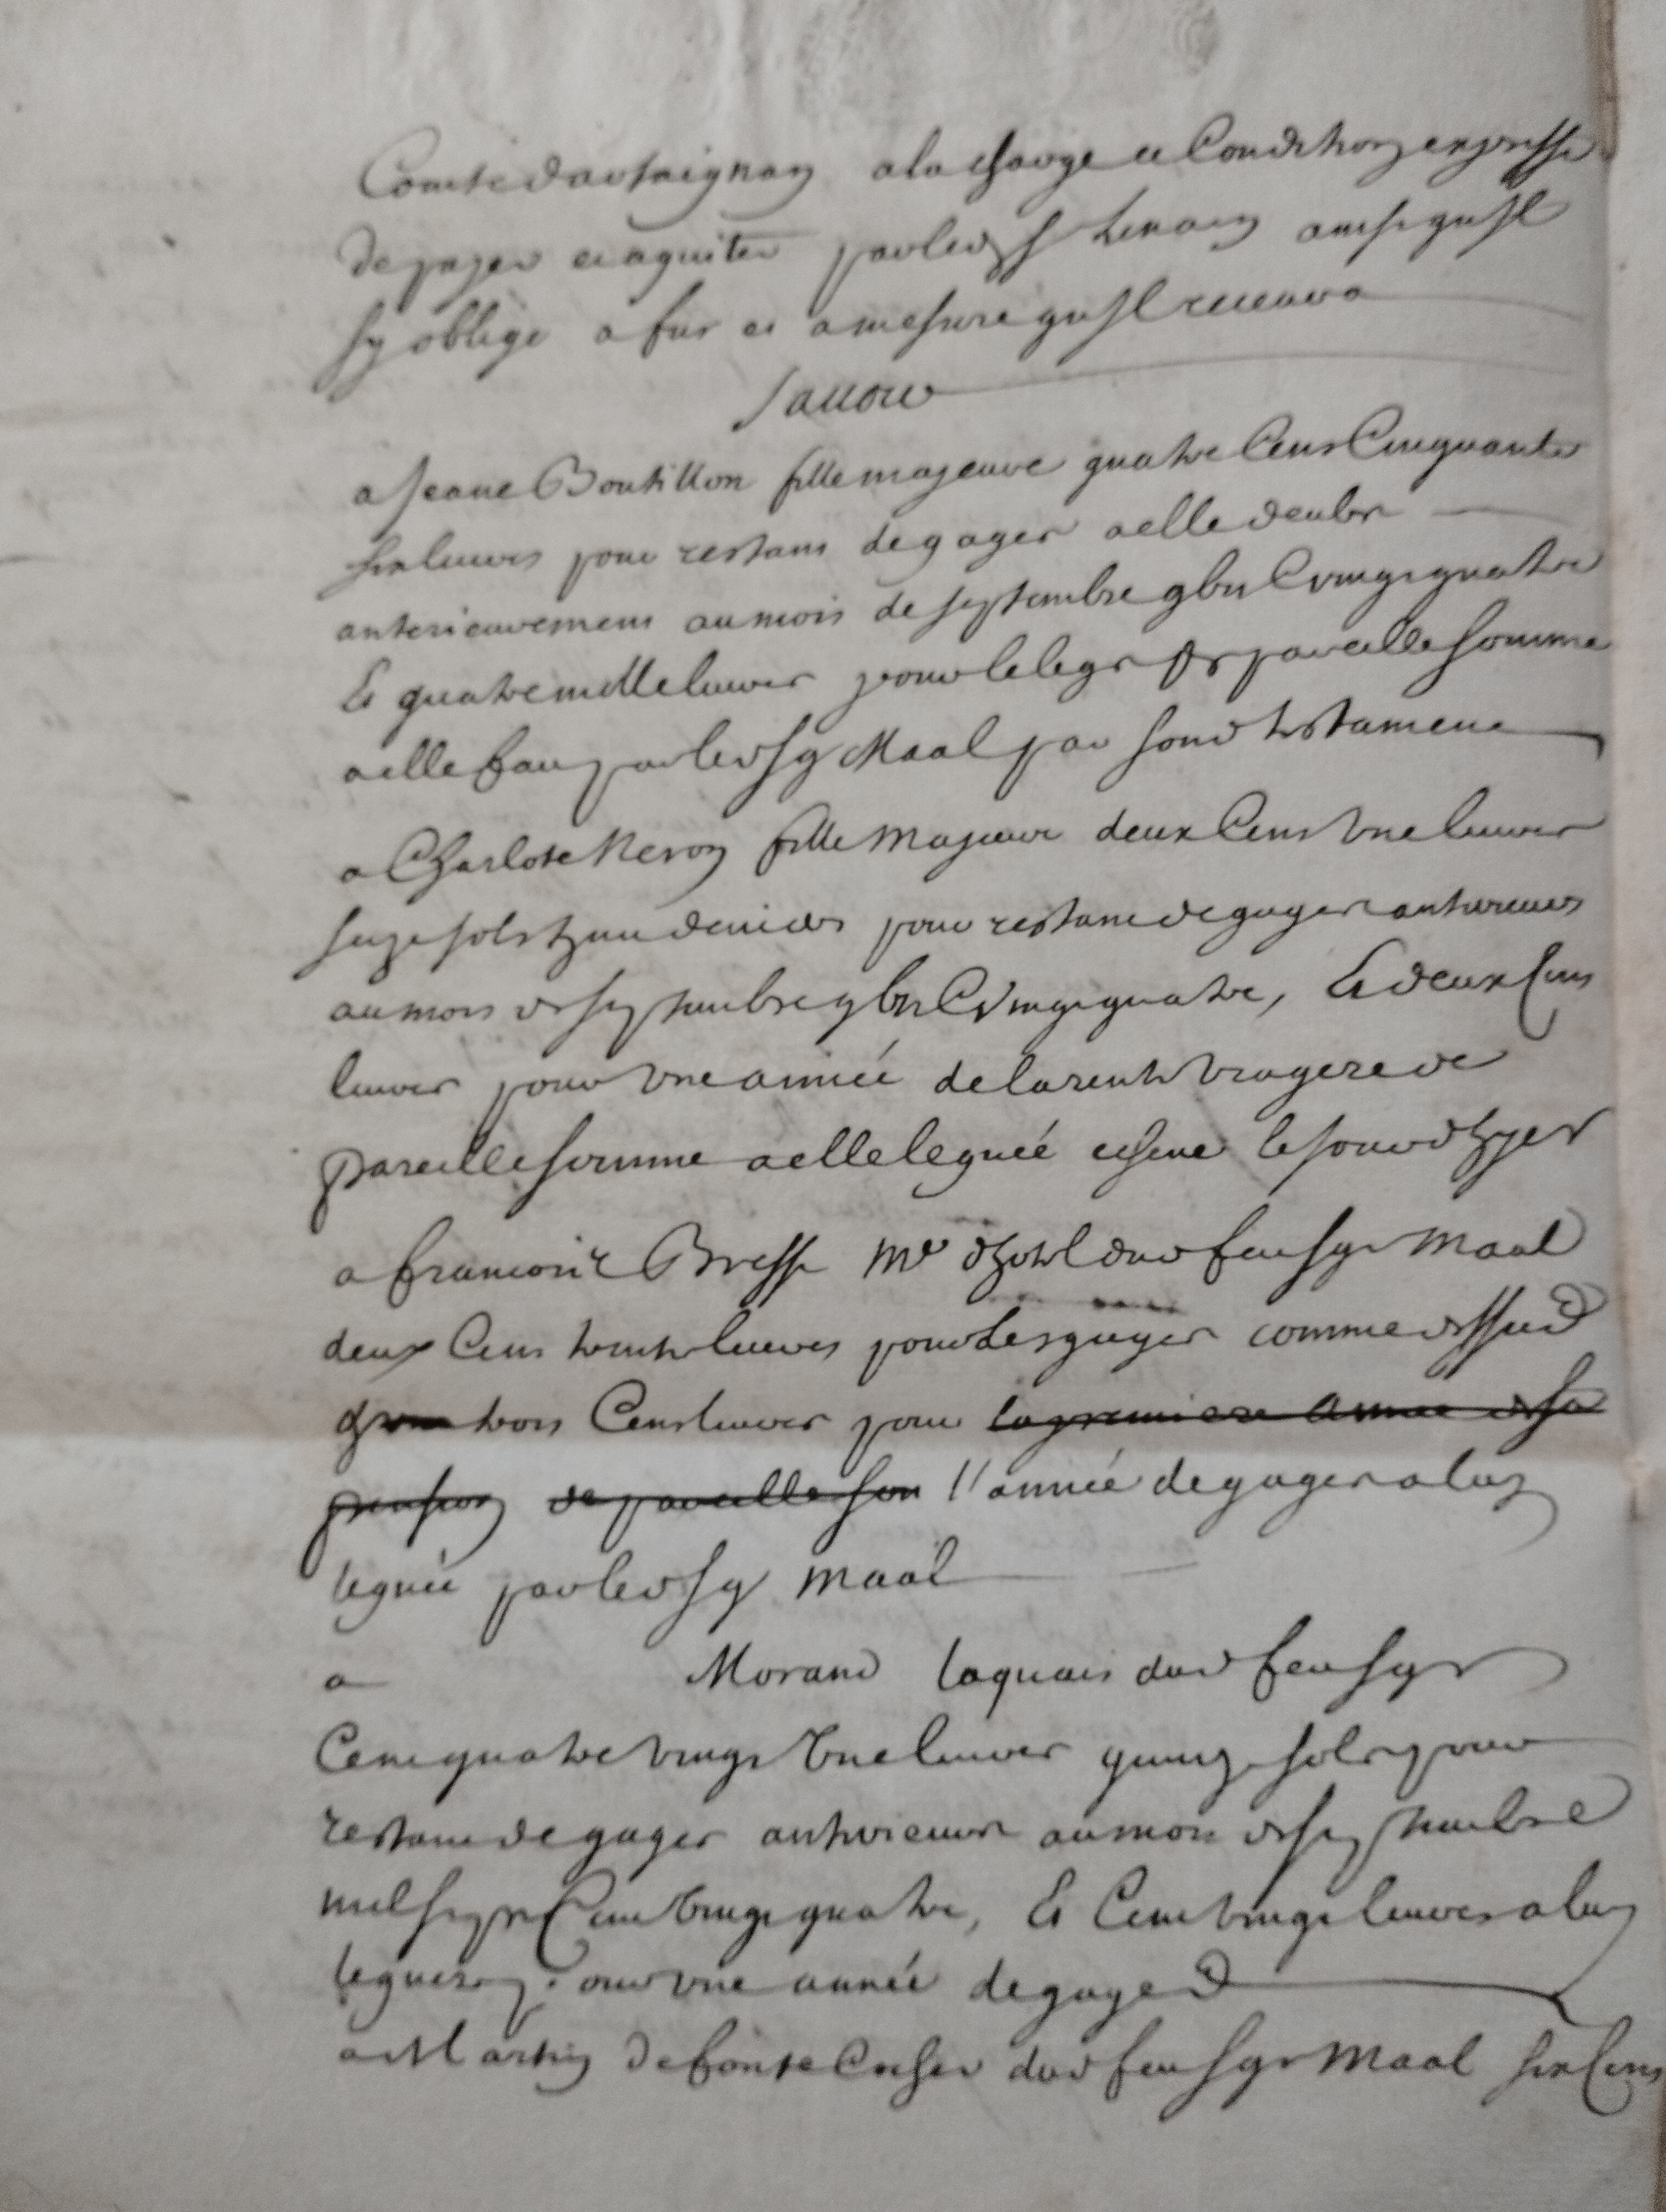 Comte dartaignan a la charge et Condition expresse
de payer et aquiter par led Sr ainsi quil
sy oblige a fur et a mesure quil recevra
Sauoir
a Jeane Boutillon fille majeure quatre Cens Cinquante
six liures pour restant de gages a elle deubs
anterieurement au mois de septembre gbii C vingt quatre
Et quatre mille liures pour le legs de pareille somme
a elle fait par led Sgr Maal par sond testament
a Charlote Neron fille Majeure deux Cens Une liures
seize sols hun deniers pour restant de gages anterieurs
au mois de septembre gbii C Vingt quatre, Et deux Cens
liures pour Une année de la rente Viagere de
pareille somme a elle leguée eschue le jour dhyer
a francois Bresse Me dhotel dud feu Sgr Maal
deux Cens trente liures pour des gages comme dessus
trois Cens liures pour la premiere année de sa
pension de pareille som l'année de gages a luy
leguée par led Sgr Maal
a Morand laquais dud feu Sgr
Cent quatre vingt Une liures quinze sols pour
restant de gages anterieurs au mois de septembre
mil sept Cent Vingt quatre, Et Cent vingt liures a luy
leguez pour une année de gages
a Martin Cocher dud feu Sgr Maal six Cens